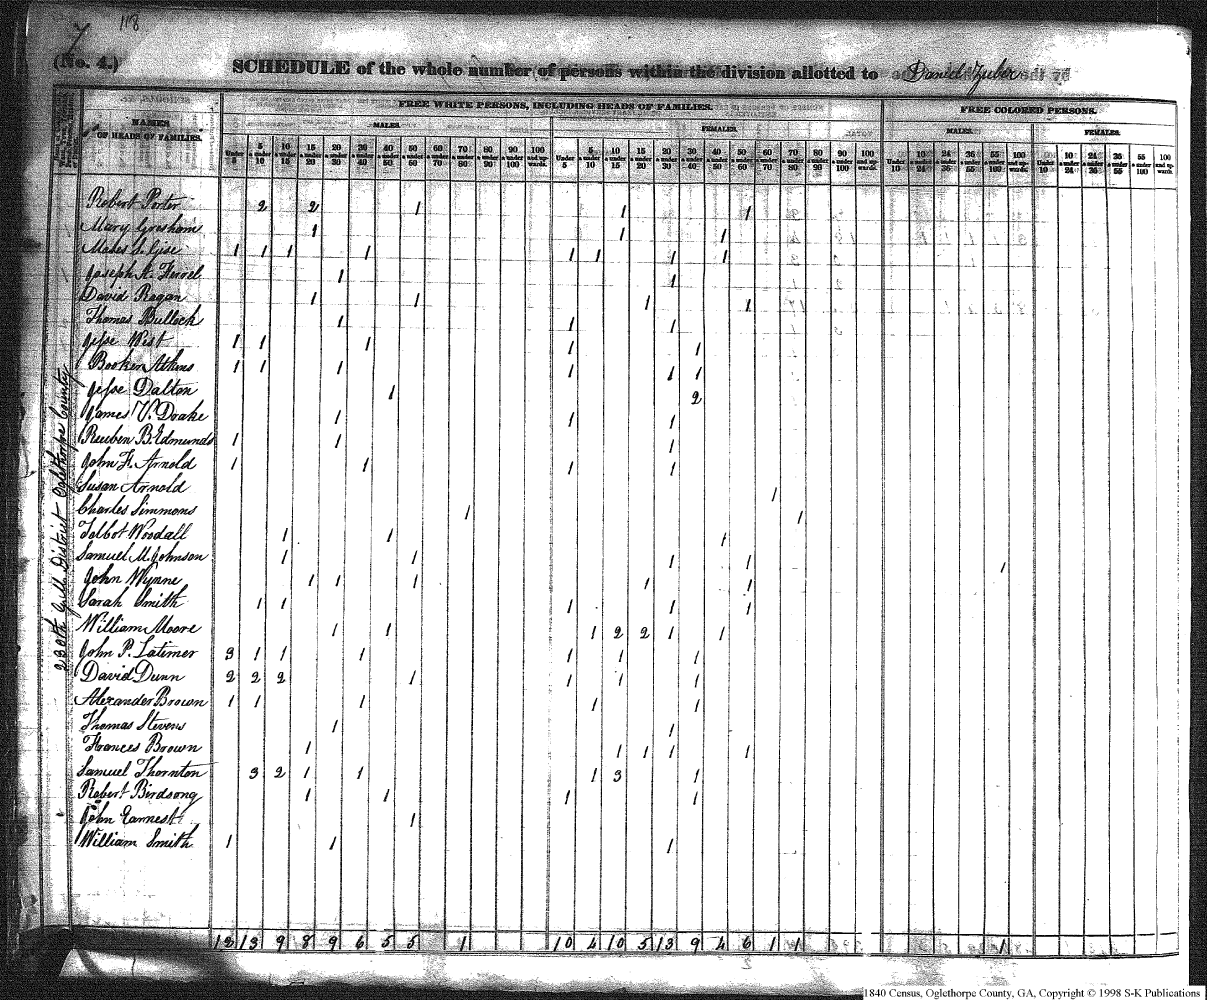 7 118
(No. 4.) SCHEDULE of the whole number of persons within the division allotted to Daniel Zuber
NAMES OF HEADS OF FAMILIES.
FREE WHITE PERSONS, INCLUDING HEADS OF FAMILIES.
FREE COLORED PERSONS.
MALES. FEMALES. MALES. FEMALES.
Under 5 5 & under 10 10 & under 15 15 & under 20 20 & under 30 30 & under 40 40 & under 50 50 & under 60 60 & under 70 70 & under 80 80 & under 90 90 & under 100 100 and upwards. Under 5 5 & under 10 10 & under 15 15 & under 20 20 & under 30 30 & under 40 40 & under 50 50 & under 60 60 & under 70 70 & under 80 80 & under 90 90 & under 100 100 and upwards. Under 10 10 & under 24 24 & under 36 36 & under 55 55 & under 100 100 and upwards. Under 10 10 & under 24 24 & under 36 36 & under 55 55 & under 100 100 and upwards.
230th G.M. District Oglethorpe County
Robert Porter 2 2 1 1 1
Mary Gresham 1 1 1
1 1 1 1 1 1 1 1
Joseph A. Ferrel 1 1
David Ragan 1 1 1 1
Thomas Bullock 1 1 1
Jesse West 1 1 1 1 1
Booker Atkins 1 1 1 1 1 1
Jesse Dalton 1 2
James V. Doake 1 1 1
Reuben B. Edmunds 1 1 1
John F. Arnold 1 1 1 1
Susan Arnold 1
Charles Simmons 1 1
Tolbot Woodall 1 1 1
Samuel M. Johnson 1 1 1 1 1
John Wynne 1 1 1 1 1
Sarah Smith 1 1 1 1 1
William Moore 1 1 1 2 2 1 1
John P. Latimer 3 1 1 1 1 1 1
David Dunn 2 2 2 1 1 1 1
Alexander Brown 1 1 1 1 1
Thomas Stevens 1 1
Frances Brown 1 1 1 1 1
Samuel Thornton 3 2 1 1 1 3 1
Robert Birdsong 1 1 1 1
John Earnest 1
William Smith 1 1 1
12 13 9 8 9 6 5 5 1 10 4 10 5 13 9 4 6 1 1 1
1840 Census, Oglethorpe County, GA, Copyright © 1998 S-K Publications